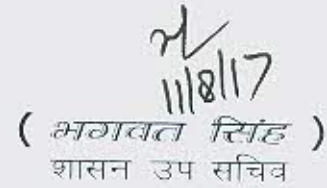 11/8/17
( भगवत सिंह )
शासन उप सचिव